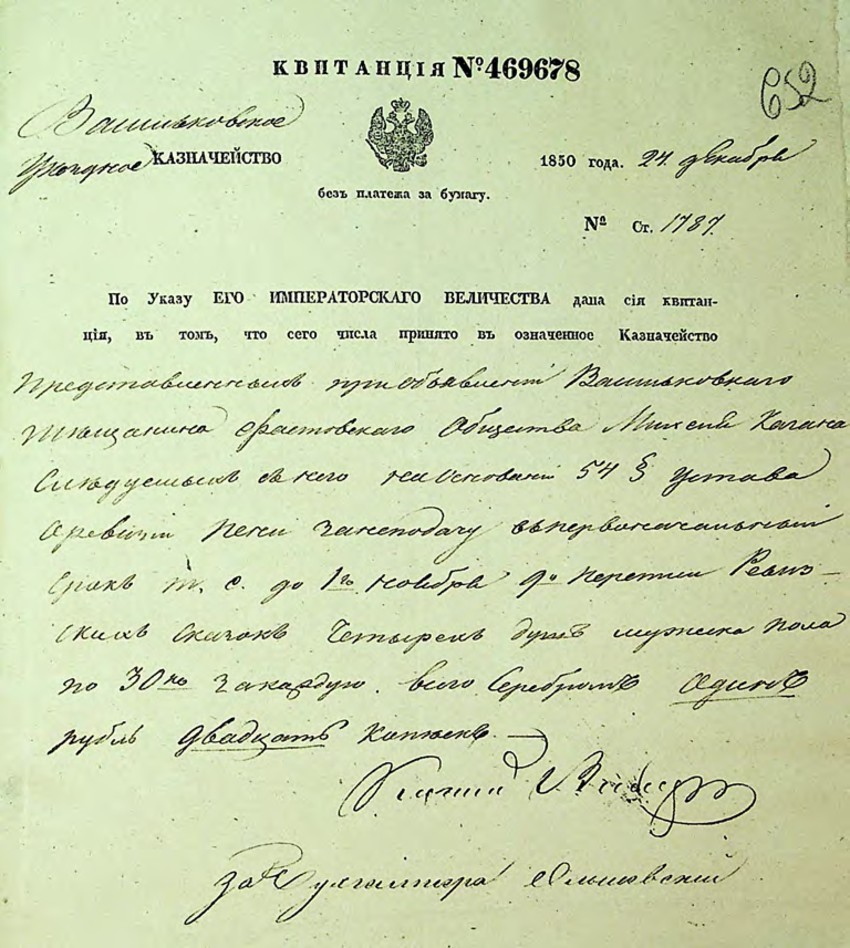 КВИТАНЦІЯ №469678
652
Васильковское
Уѣздное КАЗНАЧЕЙСТВО
1850 года. 24 декабря
безъ платежа за бумагу.
№ Ст. 1787.
По Указу ЕГО ИМПЕРАТОРСКАГО ВЕЛИЧЕСТВА дана сія квитан-
ція, въ томъ, что сего числа принято въ означенное Казначейство
Представленныхъ при объявленіи Васильковскаго
мѣщанина Фастовскаго Общества Кагана
Слѣдуемыхъ съ него на основаніи 54 § устава
о ревизіи пени за неподачу въ первоначальный
срокъ т. е. до 1го ноября Ревиз-
скихъ сказокъ Четырехъ душъ мужска пола
по 30 ко за каждую. всего Серебромъ Одинъ
рубль двадцать копѣекъ.
за Бухгалтера